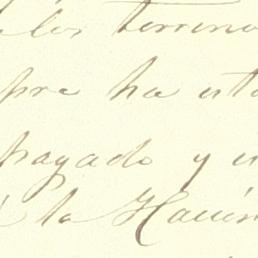 los terreno
pre ha est
pagado y e
à la Hacien